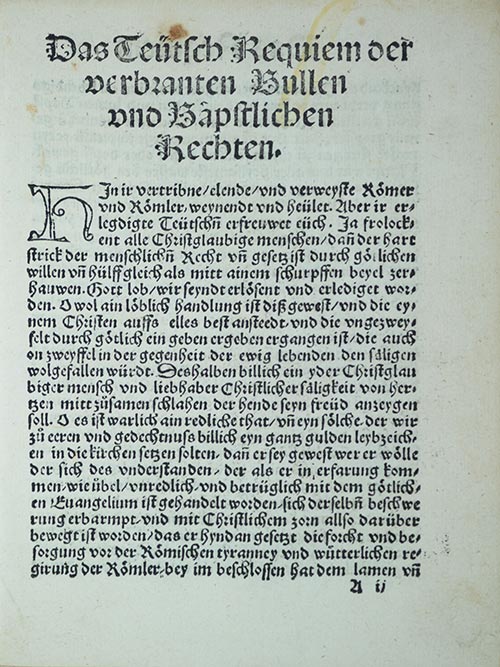 Das Teütsch Requiem der
verbranten Bullen
vnd Bäpstlichen
Rechten.
HJn ir vertribne/elende/vnd verweyste Römer
vnd Römler/weynendt vnd heület. Aber ir er-
legdigte Teütschñ erfreuwet eüch. Ja frolock-
ent alle Christglaubige menschen/dañ der hart
strick der menschlichñ Recht vñ gesetz ist durch götlichen
willen vñ hülff gleich als mitt ainem schurpffen beyel zer-
hauwen. Gott lob/wir seyndt erlösent vnd erlediget wor-
den. O wol ain löblich handlung ist diß gewest/vnd die ey-
nem Christen auffs elles best ansteedt/vnd die vngezwey-
felt durch götlich ein geben ergeben ergangen ist/die auch
on zweyffel in der gegenheit der ewig lebenden den säligen
wolgefallen würdt. Deshalben billich ein yder Christglau
biger mensch vnd liebhaber Christlicher säligkeit von her-
tzen mitt zůsamen schlahen der hende seyn freüd anzeygen
soll. O es ist warlich ain redliche that/vñ eyn sölche/der wir
zů eeren vnd gedechtnuss billich eyn gantz gulden leybzeich-
en in die kirchen setzen solten/dañ er sey gewest wer er wölle
der sich des vnderstanden/der als er in erfarung kom-
men/wie übel/vnredlich vnd betrüglich mit dem götlich-
en Euangelium ist gehandelt worden/sich derselbñ beschwe
rung erbarmpt/vnd mit Christlichem zorn allso darüber
bewegt ist worden/das er hyndan gesetzt die forcht vnd be-
sorgung vor der Römischen tyranney vnd wütterlichen re-
girung der Römler/bey im beschlossen hat dem lamen vñ
A ij